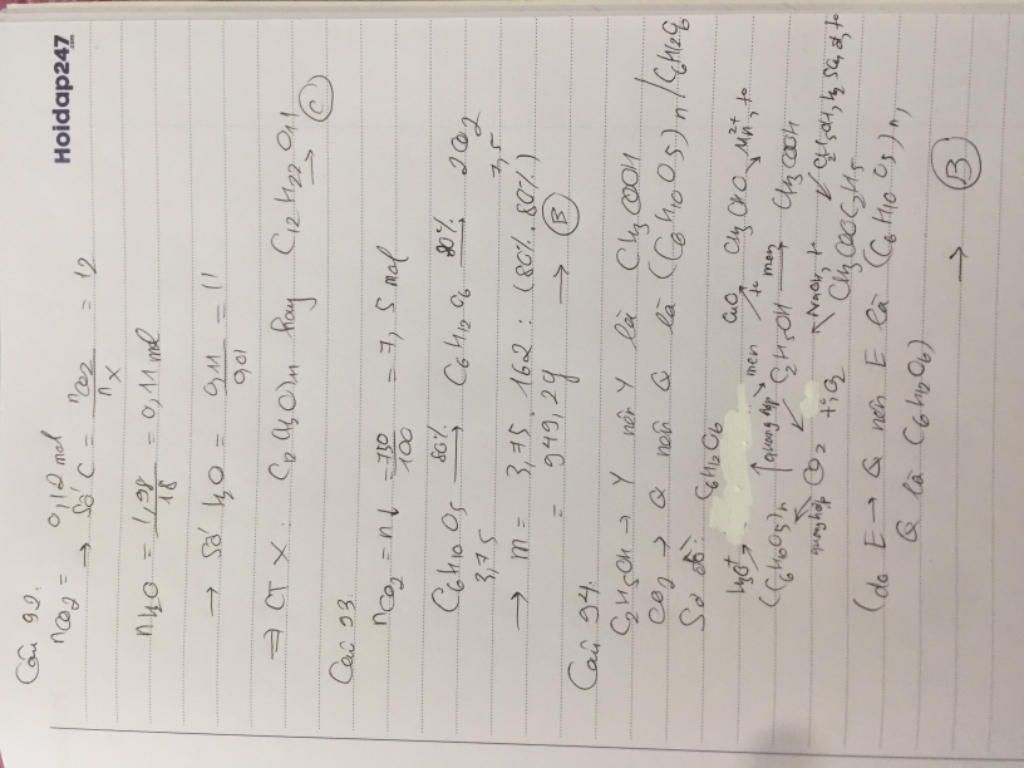 Hoidap247
.com
Câu 92:
nCO2 = 0,12 mol
→ Số C = nCO2 / nX = 12
nH2O = 1,98 / 18 = 0,11 mol
→ Số H2O = 0,11 / 0,01 = 11
⇒ CT X: hay C12H22O11
→ C
Câu 93:
nCO2 = n↓ = 750 / 100 = 7,5 mol
C6H10O5 80% → C6H12O6 80% → 2CO2
3,75 7,5
→ m = 3,75 . 162 : (80% . 80%)
= 949,2g → B
Câu 94:
C2H5OH → Y nên Y là CH3COOH
CO2 → Q nên Q là (C6H10O5)n / C6H12O6
Sơ đồ: C6H12O6
H3O+ men CuO, to CH3CHO Mn2+, to
(C6H10O5)n quang hợp C2H5OH men → CH3COOH
quang hợp CO2 + O2 NaOH, to C2H5OH, H2SO4 đ, to
CH3COOC2H5
(do E → Q nên E là (C6H10O5)n,
Q là C6H12O6)
→ B